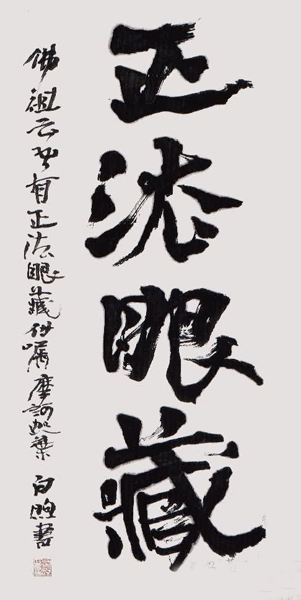 正法眼藏
佛祖云吾有正法眼藏付嘱摩訶迦葉 白煦書